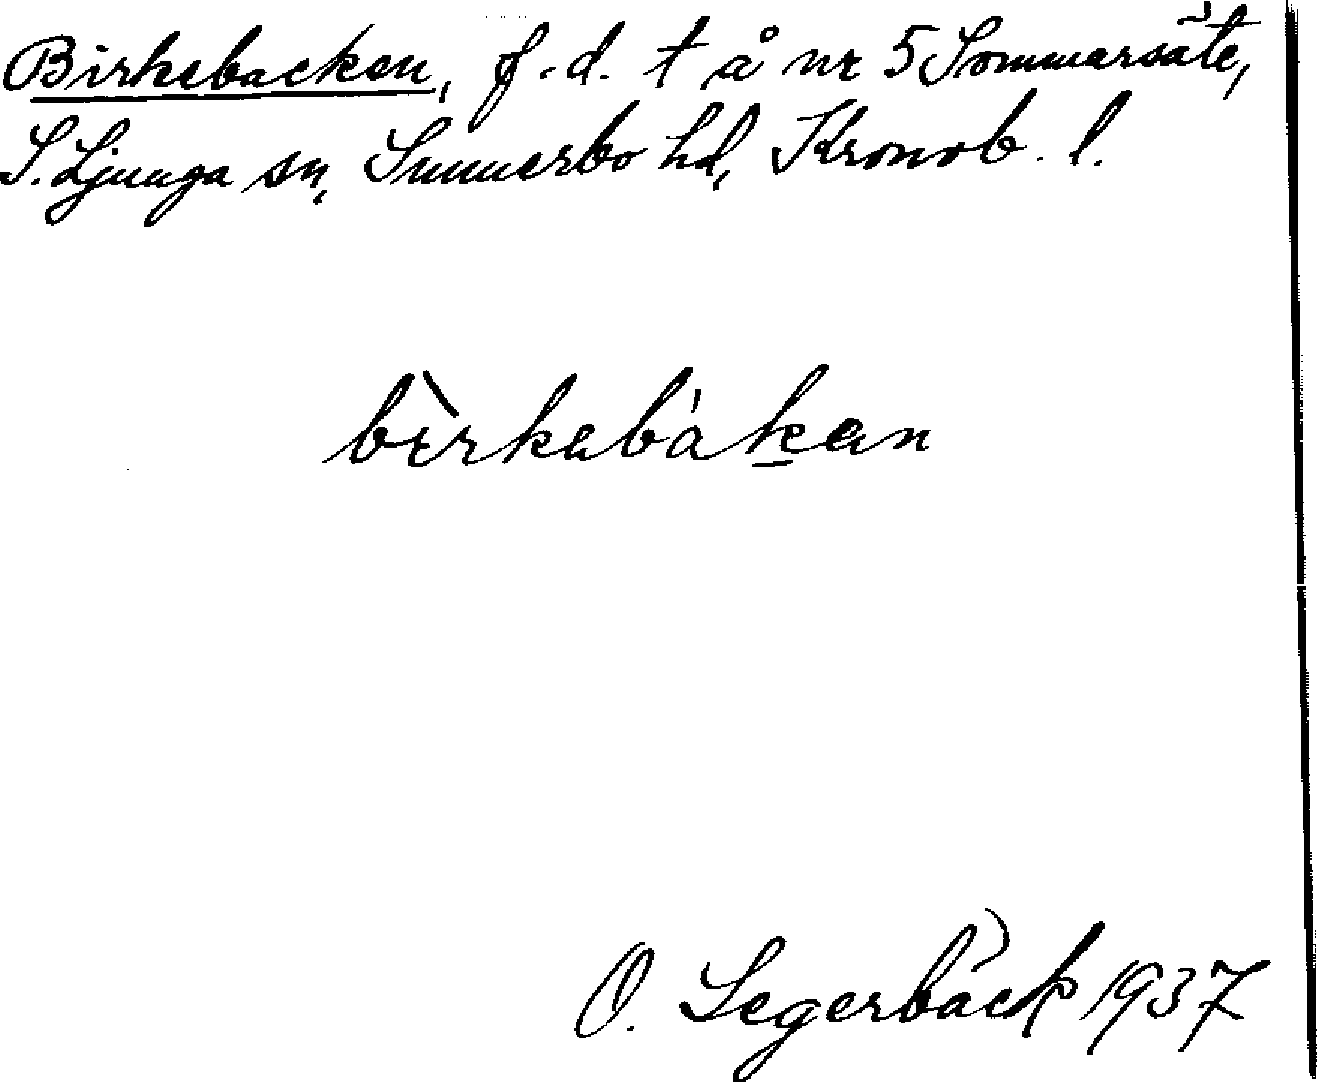 Birkebacken, f.d. t å nr 5 Sommarsäte,
S. Ljunga sn, Sunnerbo hd, Kronob. l.
bìrkabákan
O. Segerbäck 1937